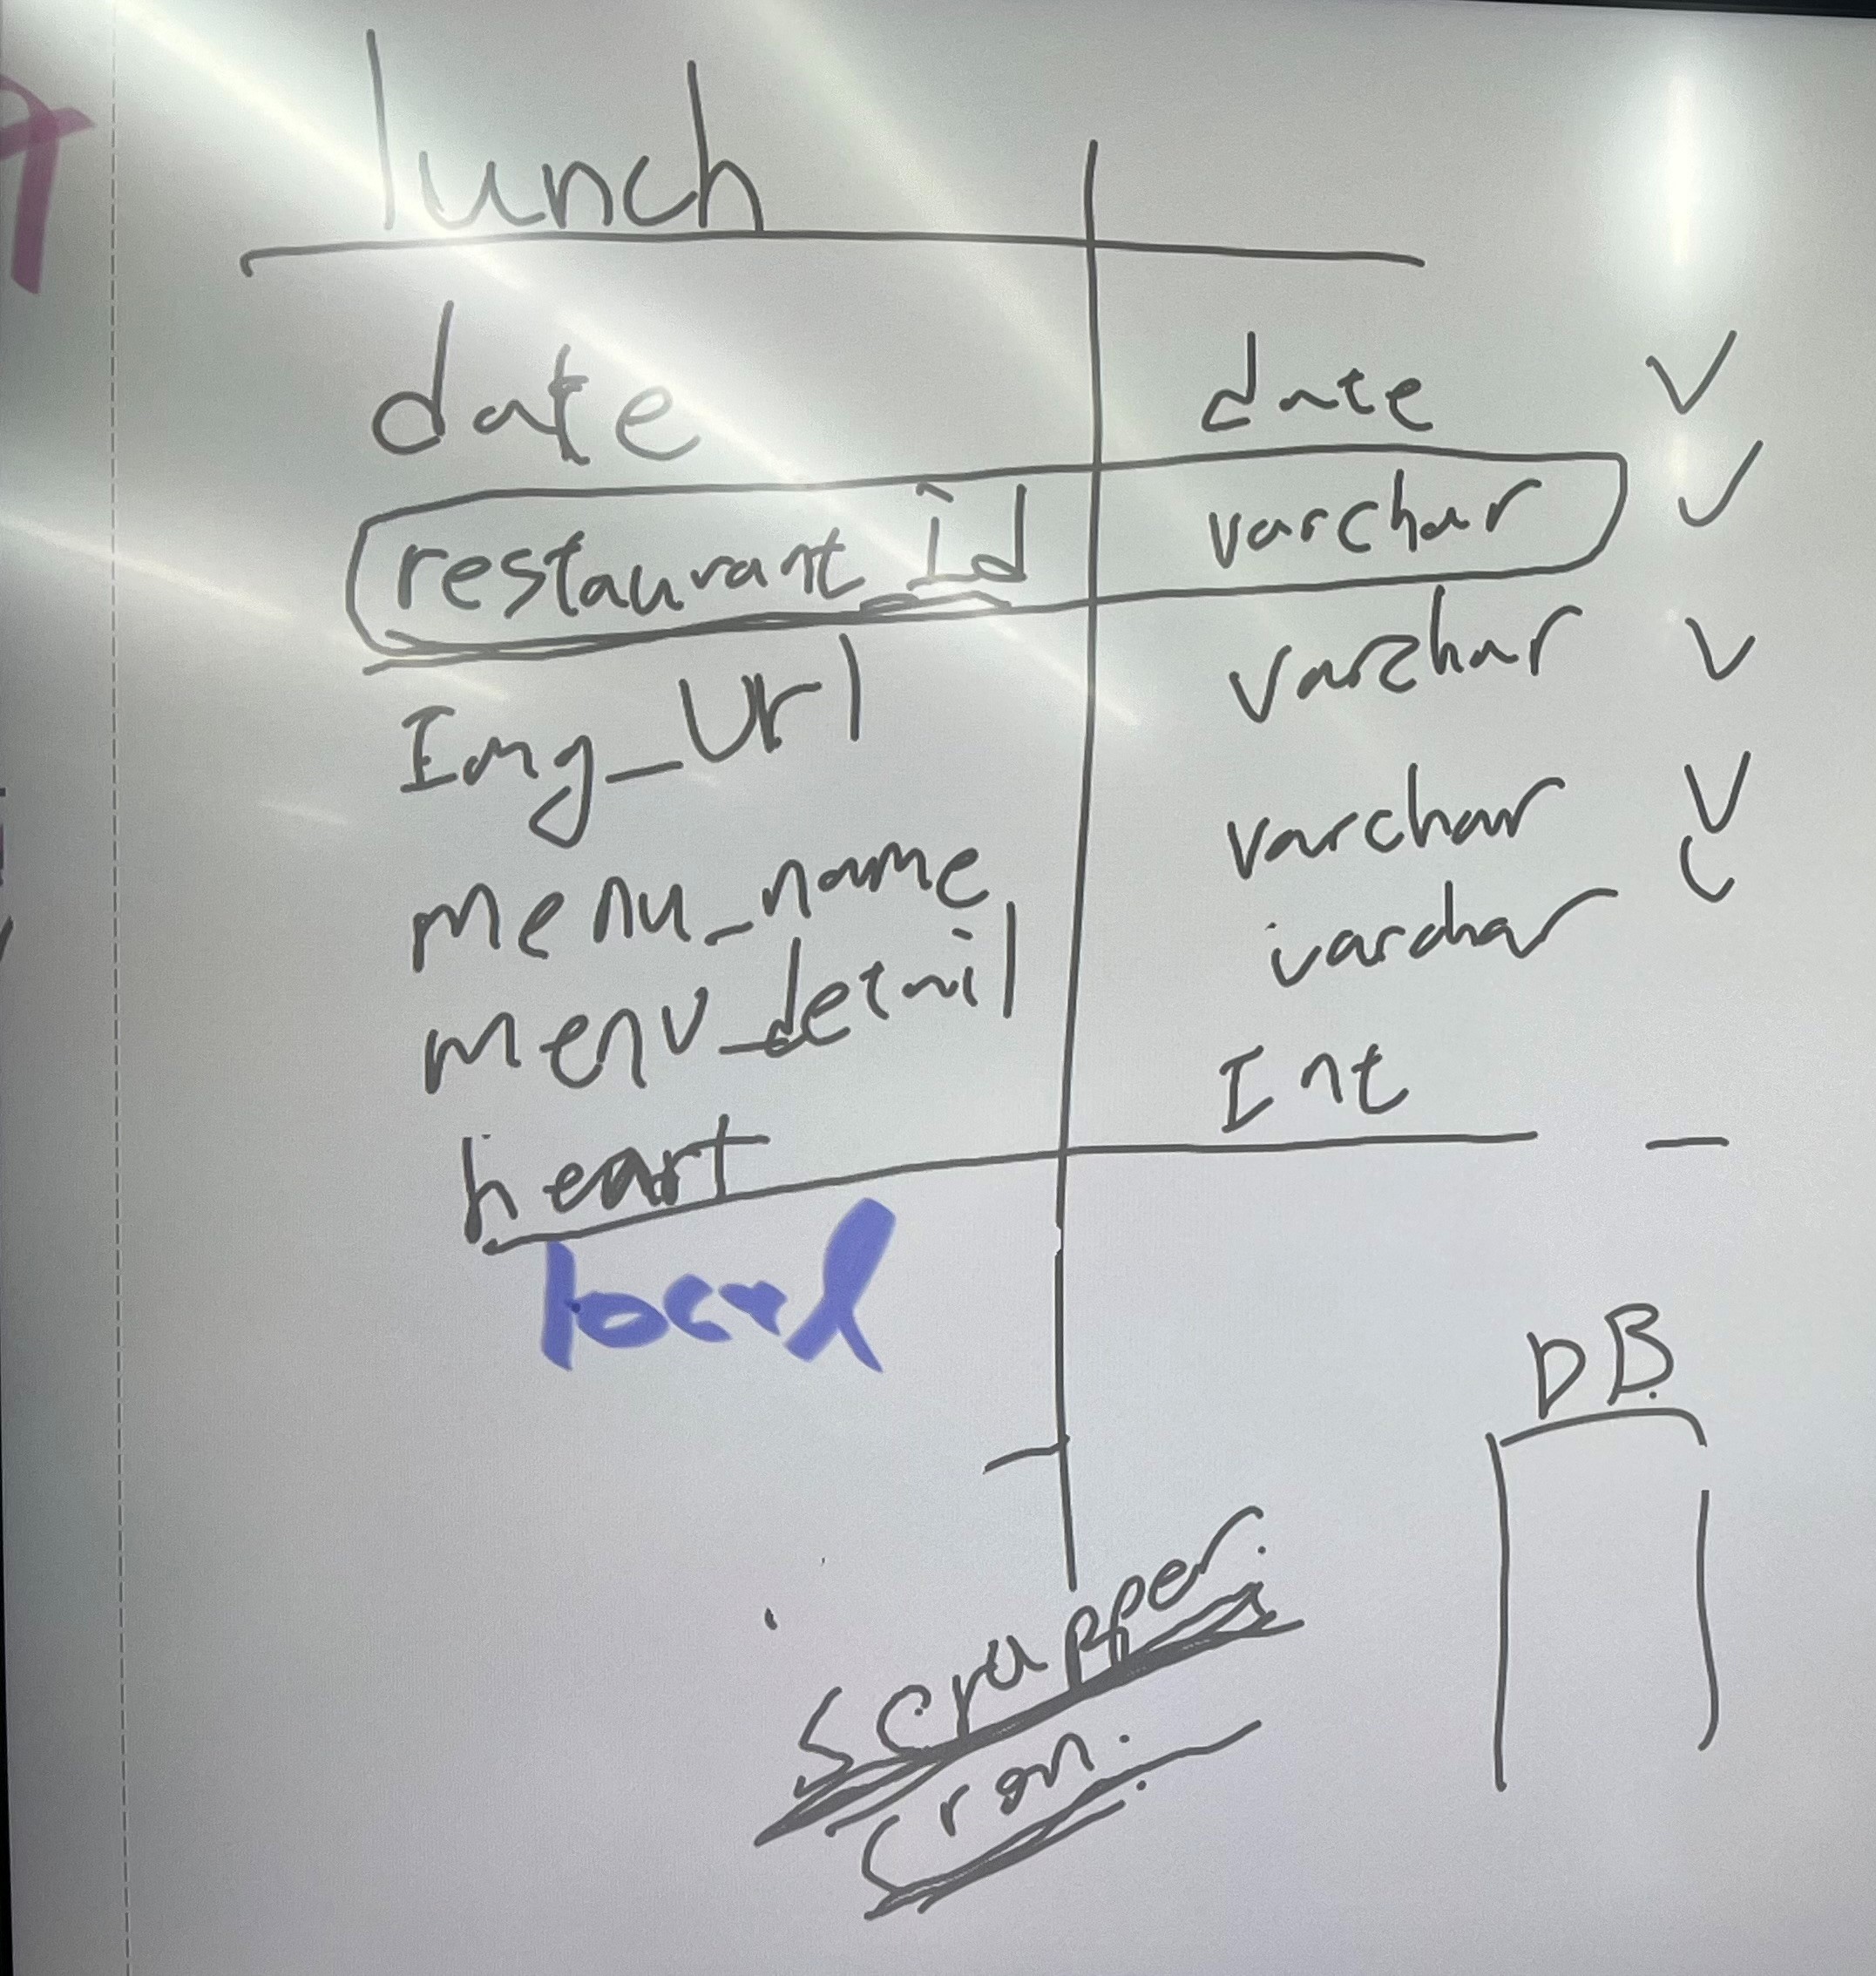 lunch
date date V
restaurant_id varchar V
Img_Url varchar V
menu_name varchar V
menu_detail varchar
heart Int —
local
DB
scrapper.
cron.